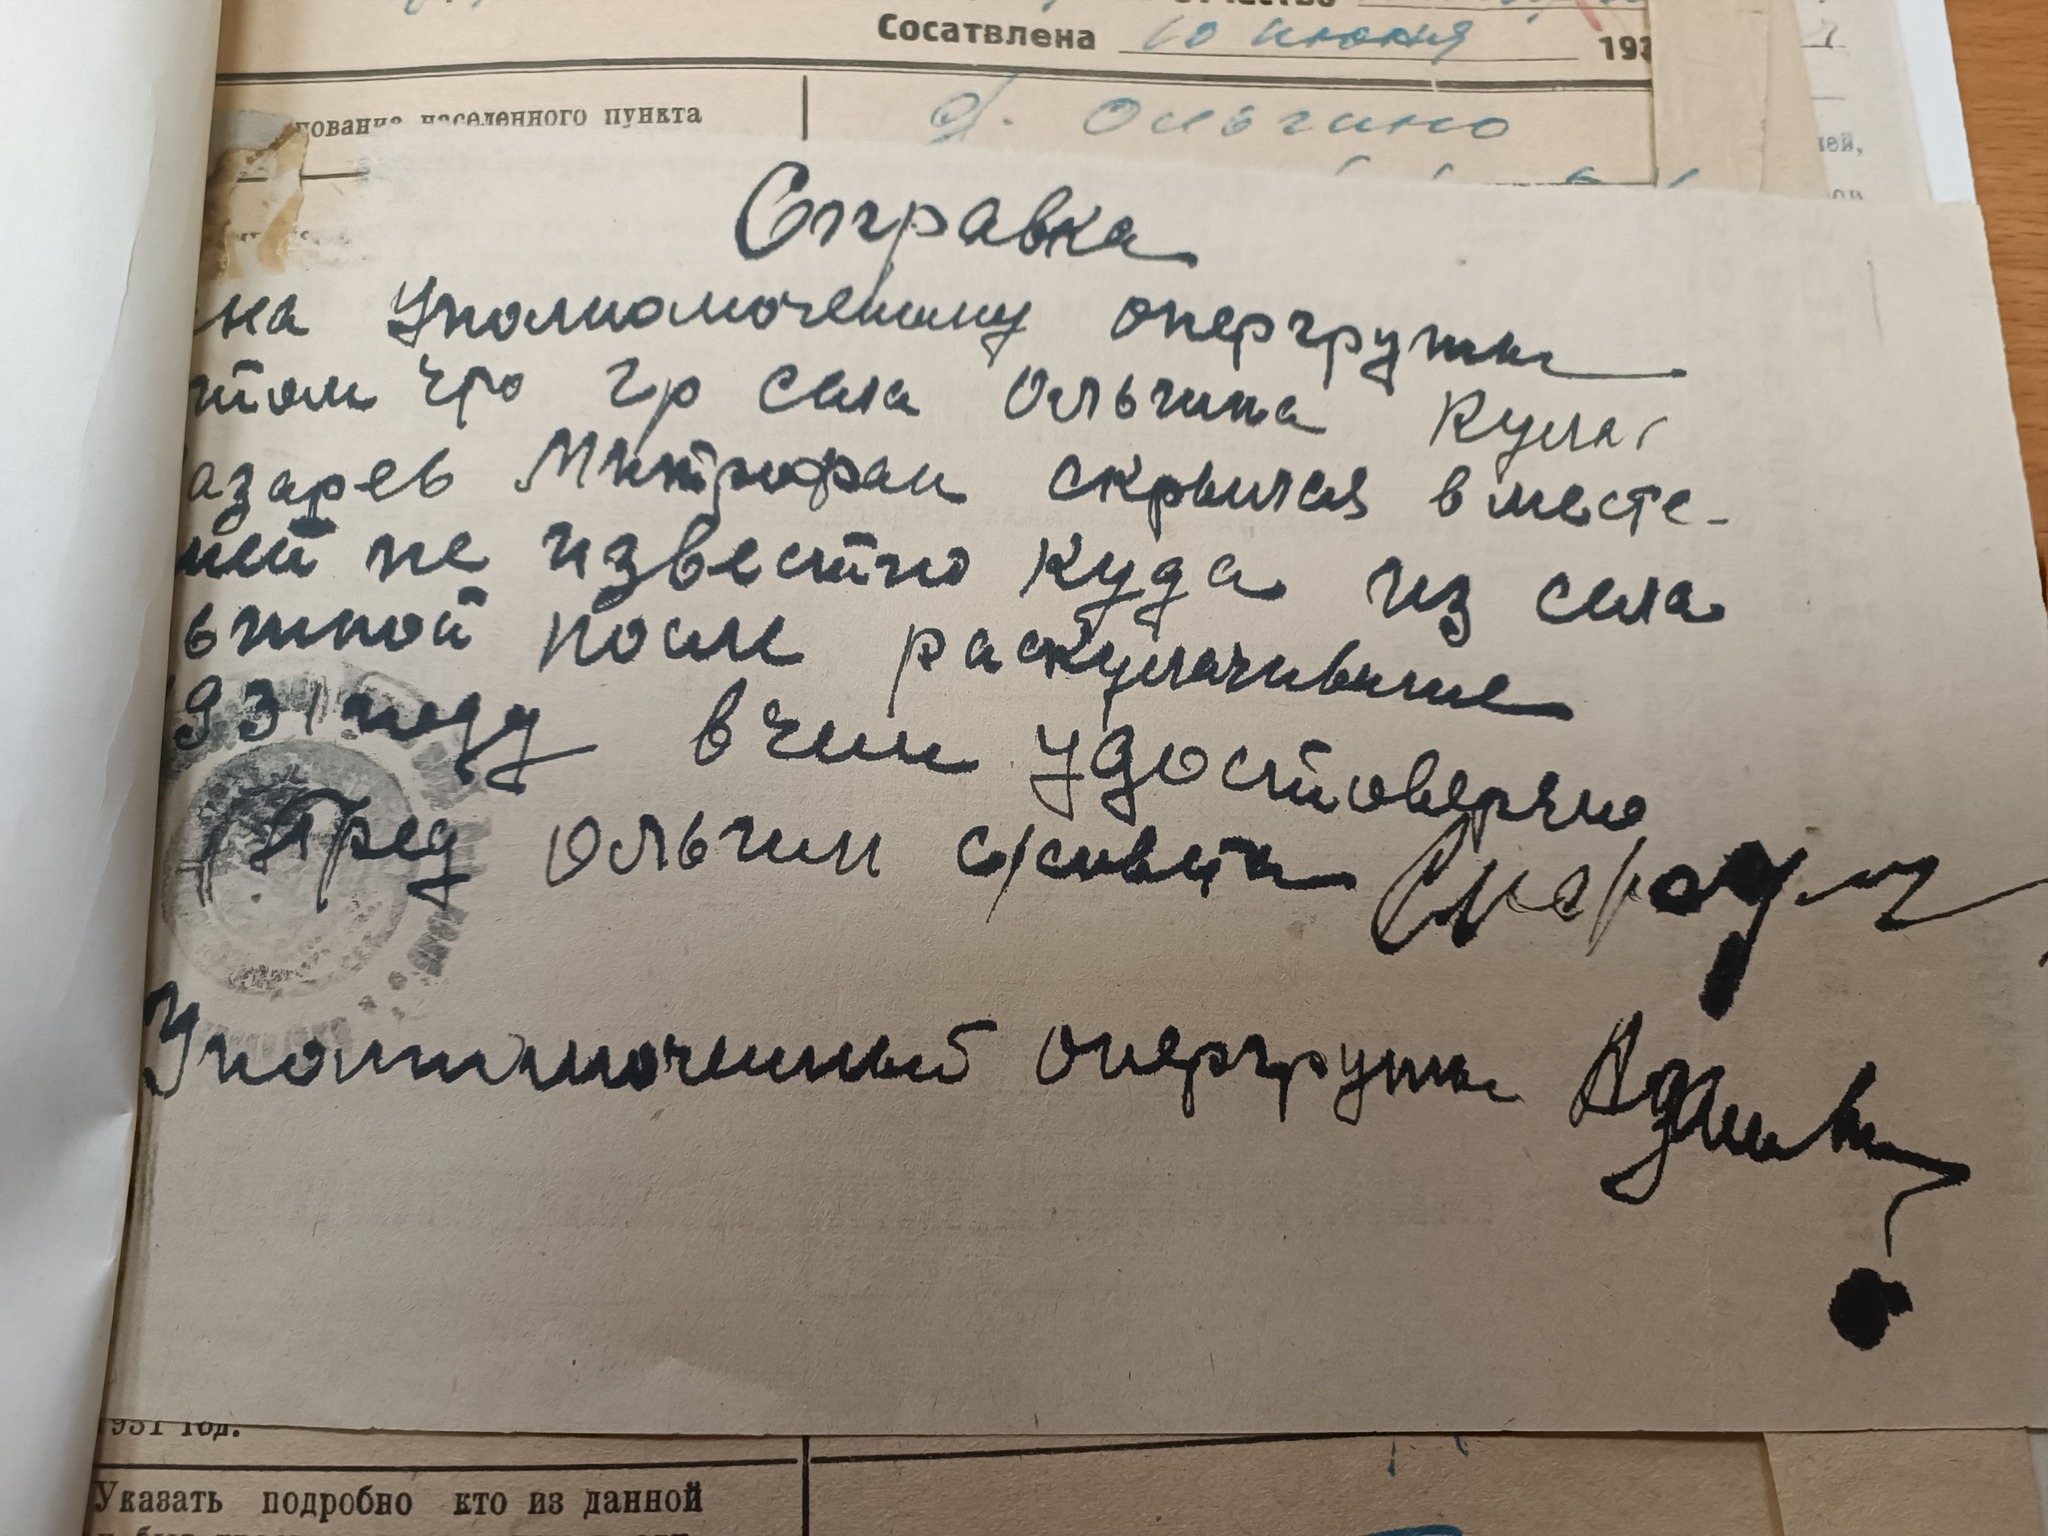 Сосатвлена 10 июня 193
нование населенного пункта
д. Ольгино
Справка
на Уполномоченому опергрупы
томо что гр села Ольгина Кулак
азарев Митрофан скрылся вместе
мей не известно куда из села
ьгиной после раскулачивание
1931 году в чем удостоверяю
Пред Ольгин с/совета
Уполномоченный опергрупы
1931 год.
Указать подробно кто из данной